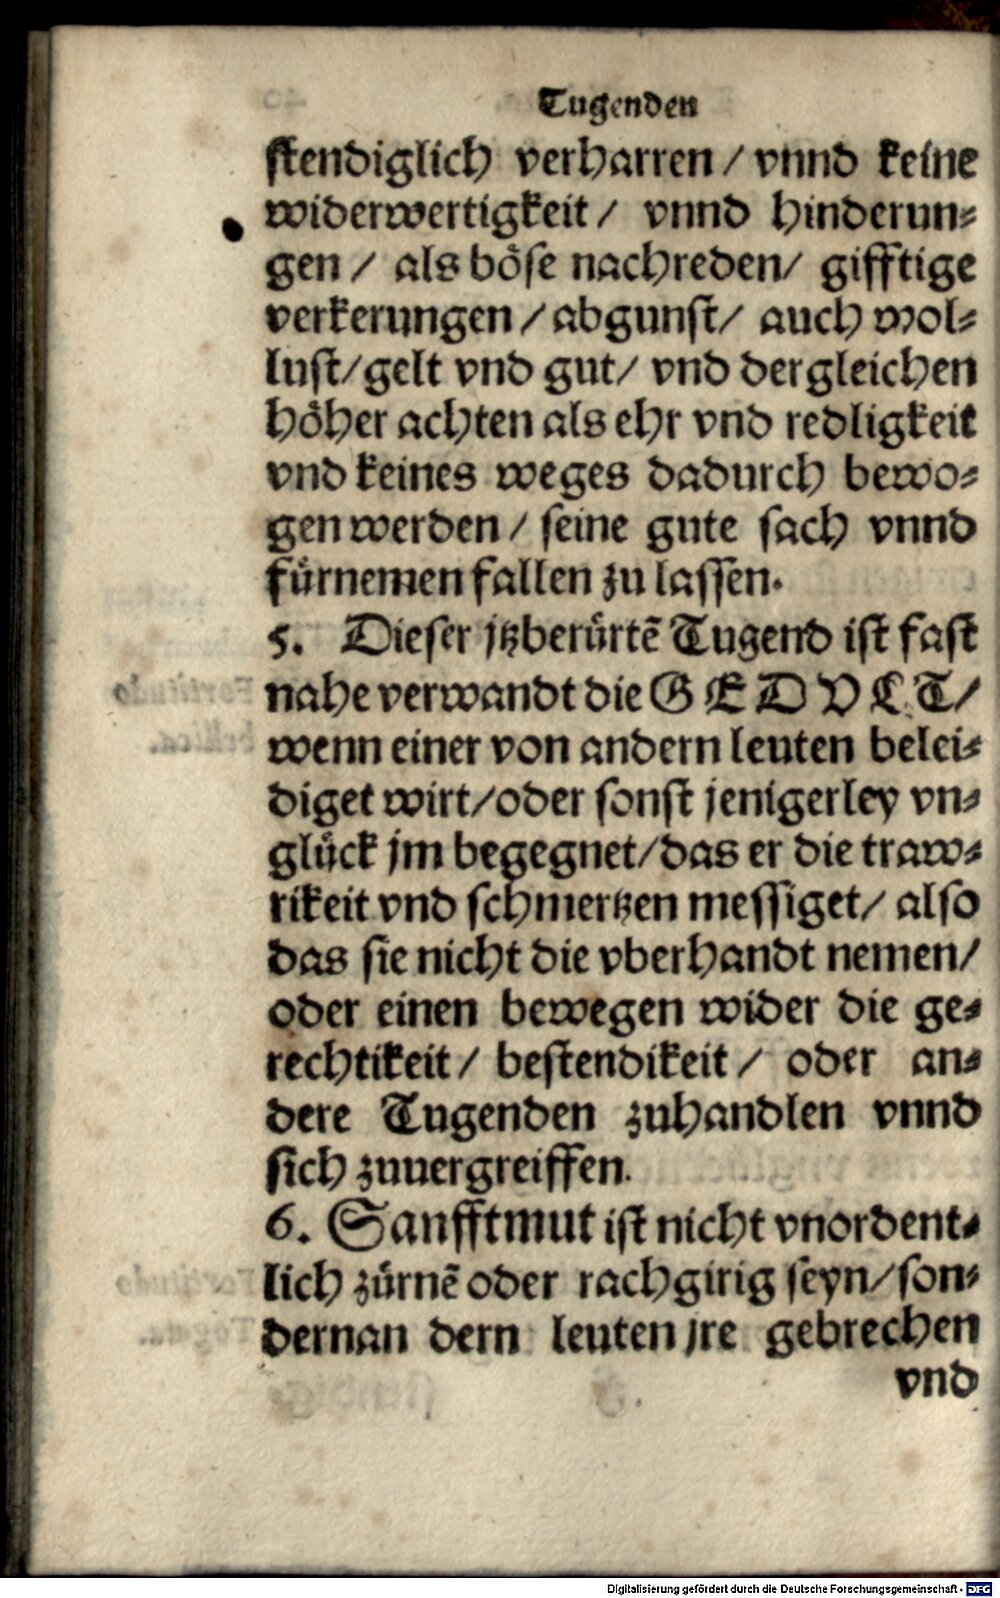 Tugenden
ſtendiglich verharren / vnnd keine
widerwertigkeit / vnnd hinderun⸗
gen / als boͤſe nachreden / gifftige
verkerungen / abgunſt / auch wol⸗
luſt / gelt vnd gut / vnd dergleichen
hoͤher achten als ehr vnd redligkeit
vnd keines weges dadurch bewo⸗
gen werden / ſeine gute ſach vnnd
fuͤrnemen fallen zu laſſen.
5. Dieſer jtzberuͤrtē Tugend iſt faſt
nahe verwandt die GEDVLT /
wenn einer von andern leuten belei⸗
diget wirt / oder ſonſt jenigerley vn⸗
gluͤck jm begegnet / das er die traw⸗
rikeit vnd ſchmertzen meſſiget / alſo
das ſie nicht die vberhandt nemen /
oder einen bewegen wider die ge⸗
rechtikeit / beſtendikeit / oder an⸗
dere Tugenden zuhandlen vnnd
ſich zuuergreiffen.
6. Sanfftmut iſt nicht vnordent⸗
lich zuͤrnē oder rachgirig ſeyn / ſon⸗
dernan dern leuten jre gebrechen
vnd
Digitalisierung gefördert durch die Deutsche Forschungsgemeinschaft - DFG